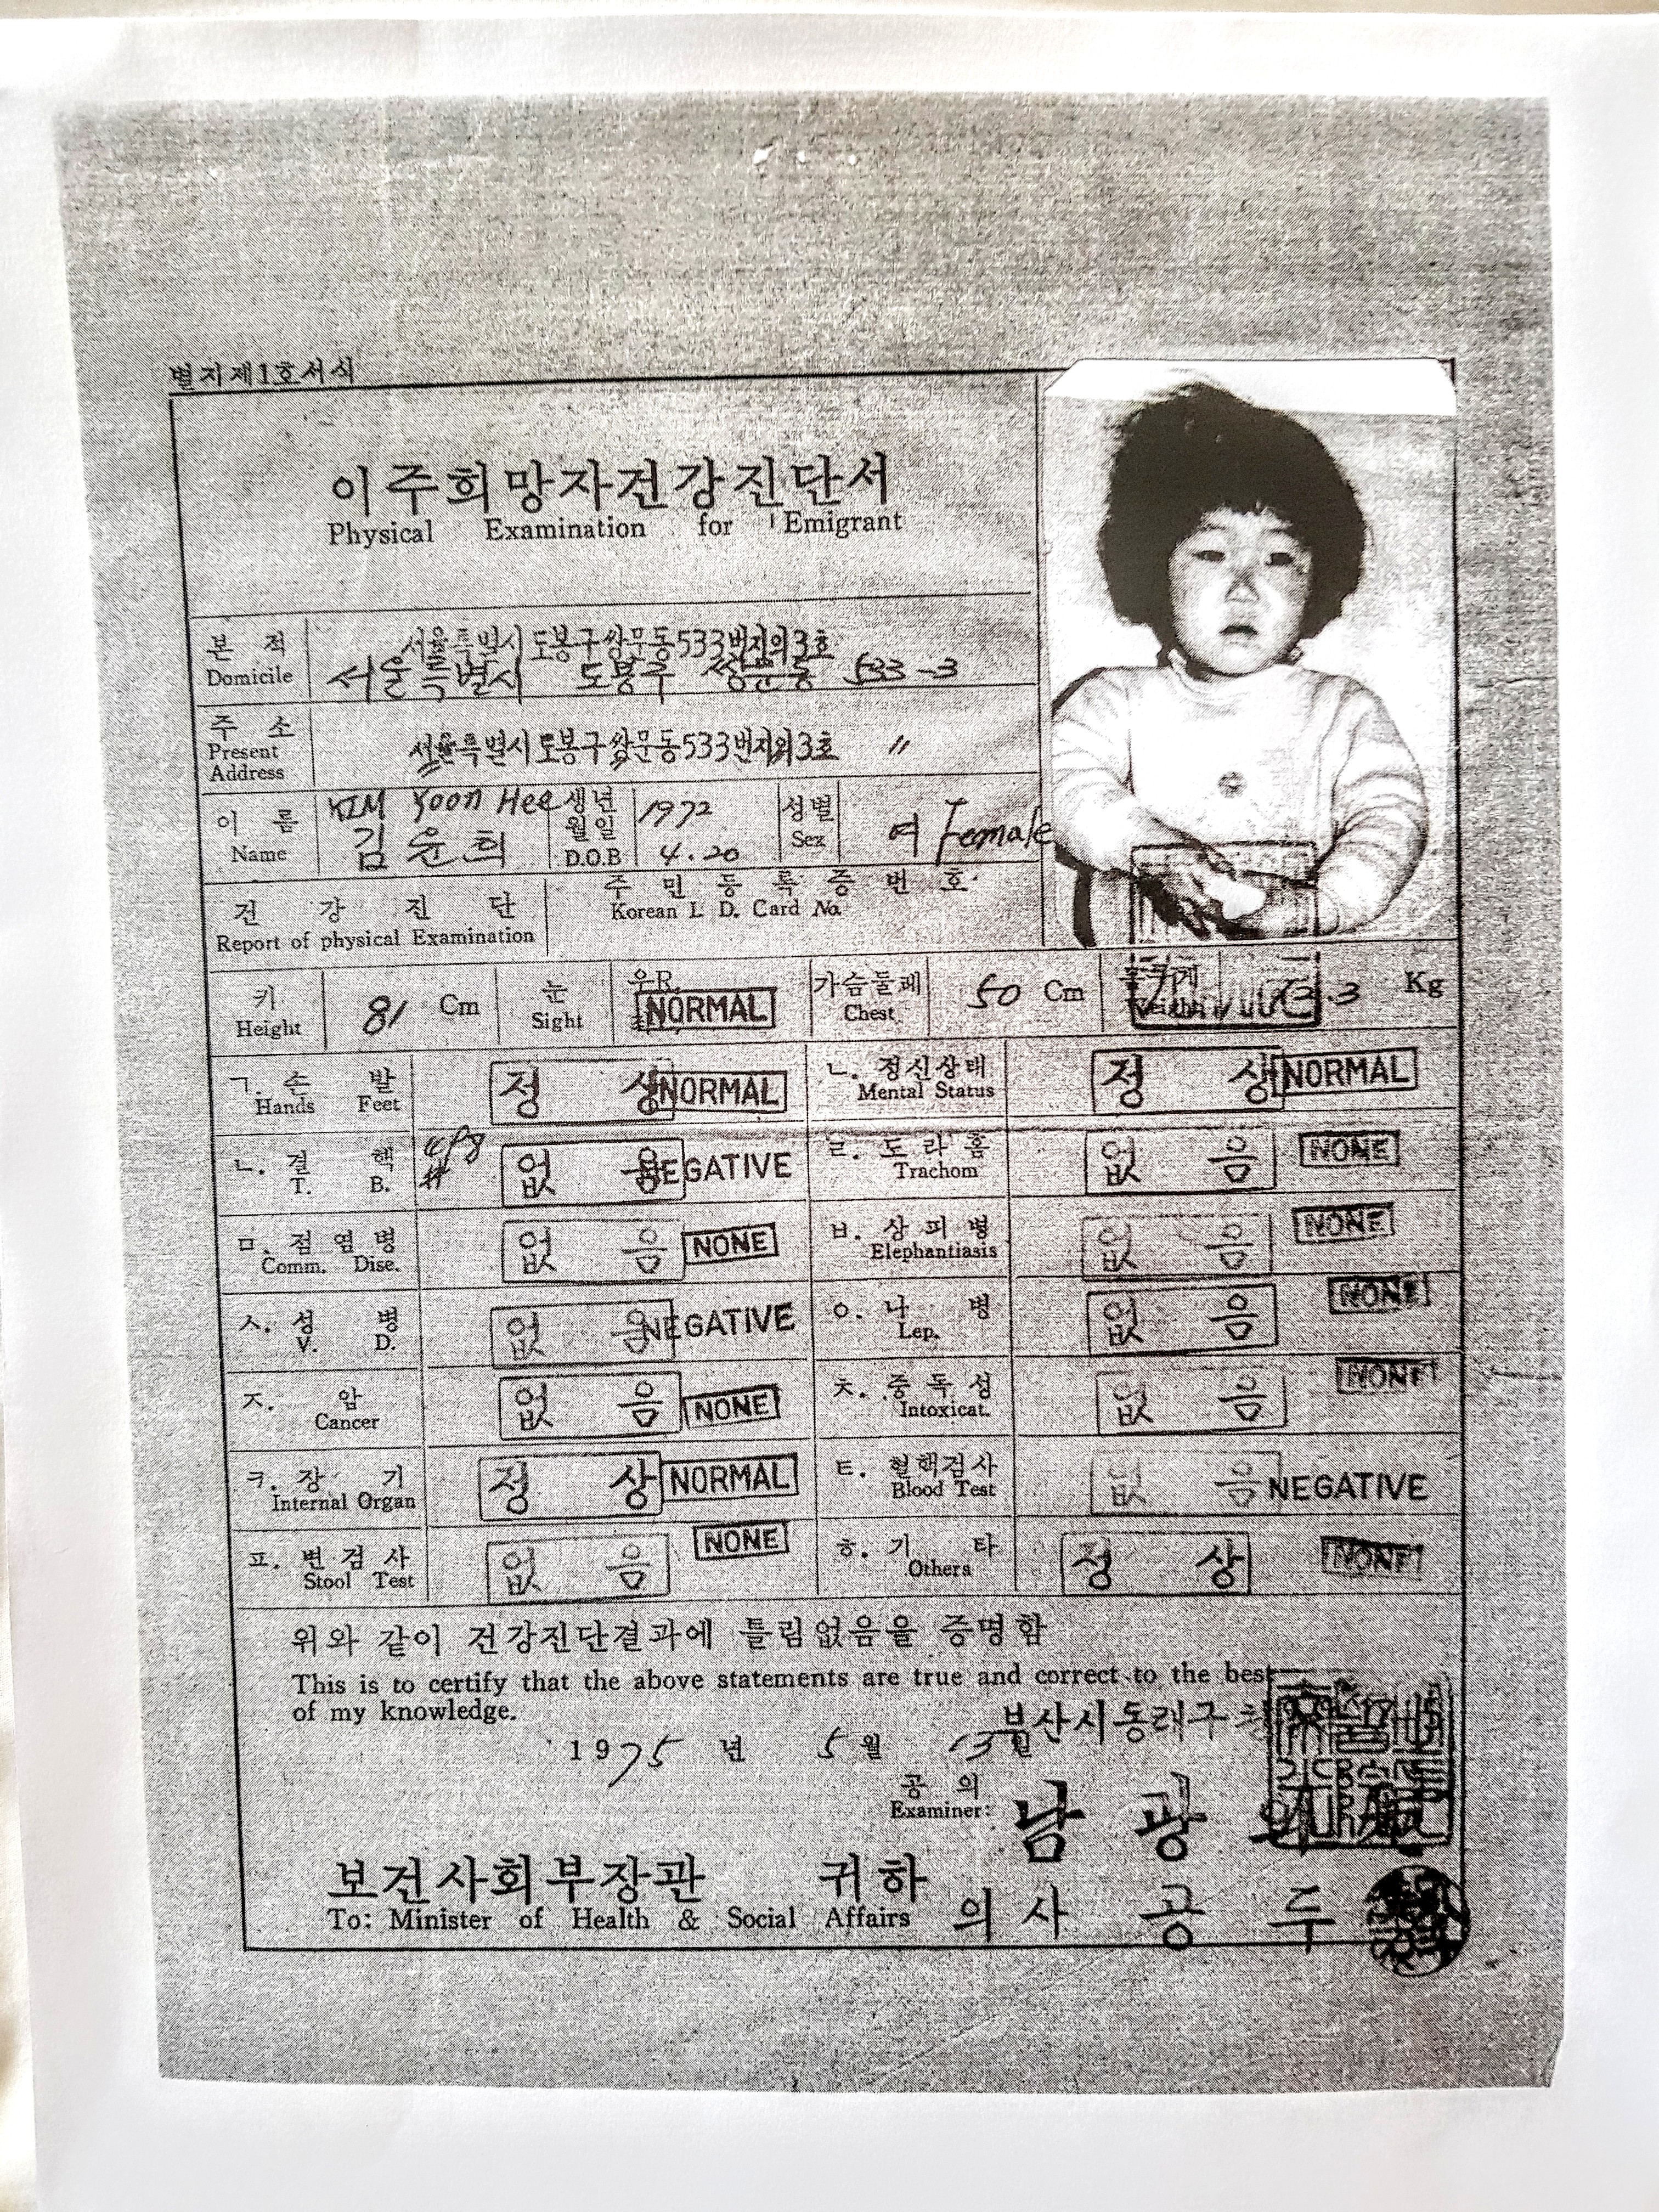 별지제1호서식
이주희망자건강진단서
Physical Examination for Emigrant
본 적
Domicile
서울특별시 도봉구쌍문동533번지의3호
서울특별시 도봉구 쌍문동 533-3
주 소
Present
Address
서울특별시도봉구쌍문동533번지의3호 〃
이 름
Name
KIM Yoon Hee
김윤희
생년
월일
D.O.B
1972
4.20
성별
Sex
여 Female
건 강 진 단
Report of physical Examination
주 민 등 록 증 번 호
Korean I. D. Card No.
키
Height
81 Cm
눈
Sight
우R
NORMAL
가슴둘레
Chest
50 Cm
.3 Kg
ㄱ. 손 발
Hands Feet
정 상 NORMAL
ㄴ. 정신상태
Mental Status
정 상 NORMAL
ㄴ. 결 핵
T. B.
없 음 NEGATIVE
ㄹ. 도 라 홈
Trachom
없 음 NONE
ㅁ. 점 염 병
Comm. Dise.
없 음 NONE
ㅂ. 상 피 병
Elephantiasis
없 음 NONE
ㅅ. 성 병
V. D.
없 음 NEGATIVE
ㅇ. 나 병
Lep.
없 음 NONE
ㅈ. 암
Cancer
없 음 NONE
ㅊ. 중 독 성
Intoxicat.
없 음 NONE
ㅋ. 장 기
Internal Organ
정 상 NORMAL
ㅌ. 혈핵검사
Blood Test
없 음 NEGATIVE
ㅍ. 변 검 사
Stool Test
없 음 NONE
ㅎ. 기 타
Others
정 상 NONE
위와 같이 건강진단결과에 틀림없음을 증명함
This is to certify that the above statements are true and correct to the best
of my knowledge.
부산시동래구
1975 년 5 월
공 의
Examiner:
남 광
보건사회부장관 귀하
To: Minister of Health & Social Affairs
의 사 공 두